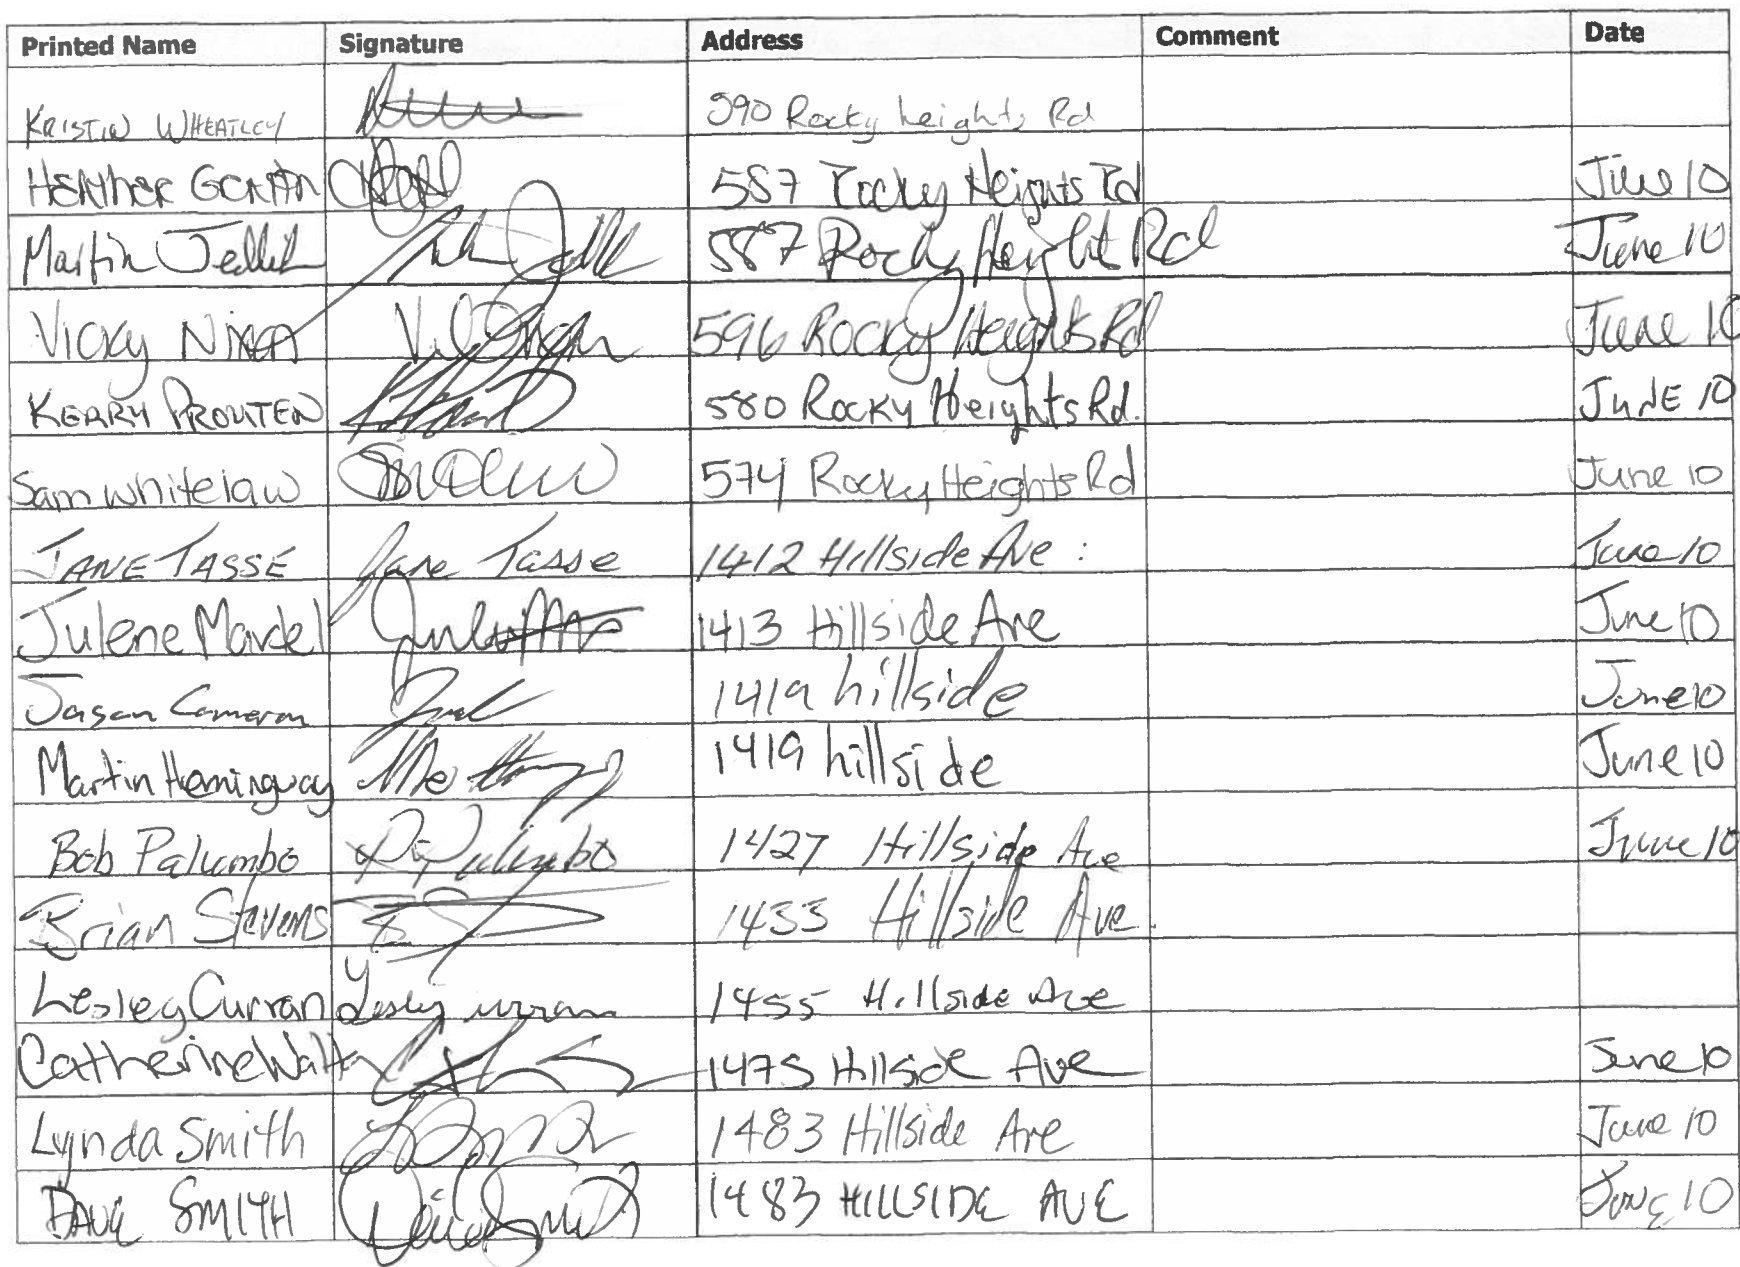 Printed Name Signature Address Comment Date
KRISTIN WHEATLEY 590 Rocky heights Rd
HEATHER 587 Rocky Heights Rd June 10
Martin 587 Rocky Height Rd June 10
Vicky 596 Rocky Heights Rd June 10
KERRY PROUTEN 580 Rocky Heights Rd. JUNE 10
Sam whitelaw 574 Rocky Heights Rd June 10
JANE TASSE Jane Tasse 1412 Hillside Ave June 10
Julene Mardel 1413 Hillside Ave June 10
Jason Cameron 1419 hillside June 10
Martin Hemingway 1419 hillside June 10
Bob Palumbo Palumbo 1427 Hillside Ave June 10
Brian Stevens 1433 Hillside Ave.
Lesley Curran 1455 Hillside Ave
Catherine 1475 Hillside Ave June 10
Lynda Smith 1483 Hillside Ave June 10
DAVE SMITH 1483 HILLSIDE AVE JUNE 10